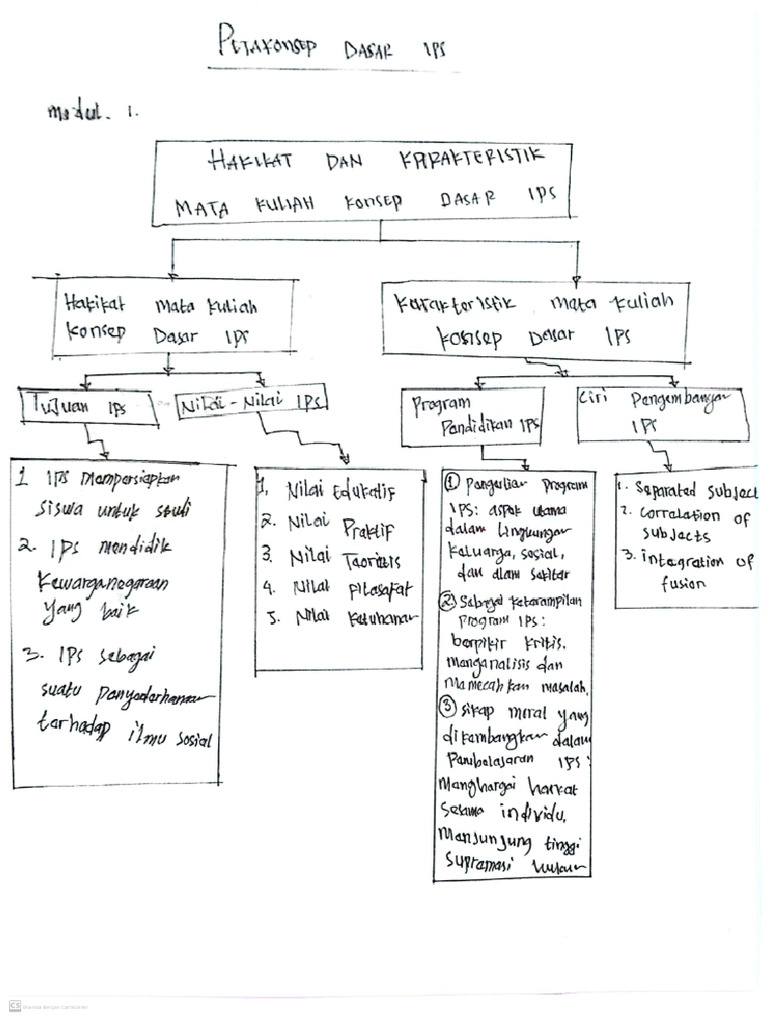 PETAKONSEP DASAR IPS
Modul. 1.
HAKIKAT DAN KARAKTERISTIK
MATA KULIAH KONSEP DASAR IPS
Hakikat Mata Kuliah
Konsep Dasar IPS
Karakteristik Mata Kuliah
Konsep Dasar IPS
Tujuan IPS
Nilai-Nilai IPS
Program
Pendidikan IPS
Ciri Pengembangan
IPS
1 IPS Mempersiapkan
siswa untuk studi
2. IPS mendidik
Kewarganegaraan
yang baik
3. IPS sebagai
suatu penyederhanaan
terhadap ilmu sosial
1. Nilai Edukatif
2. Nilai Praktif
3. Nilai Teoritis
4. Nilai Filasafat
5. Nilai Ketuhanan
① Pengertian Program
IPS: aspek utama
dalam lingkungan
Keluarga, sosial,
dan alam sekitar
② Sebagai keterampilan
program IPS:
berpikir kritis.
menganalisis dan
Memecahkan masalah.
③ sikap moral yang
dikembangkan dalam
Pembelasaran IPS:
Menghargai harkat
sesama individu.
Menjunjung tinggi
supramasi hukum
1. Separated subject
2. correlation of
subjects
3. integration of
fusion
CS